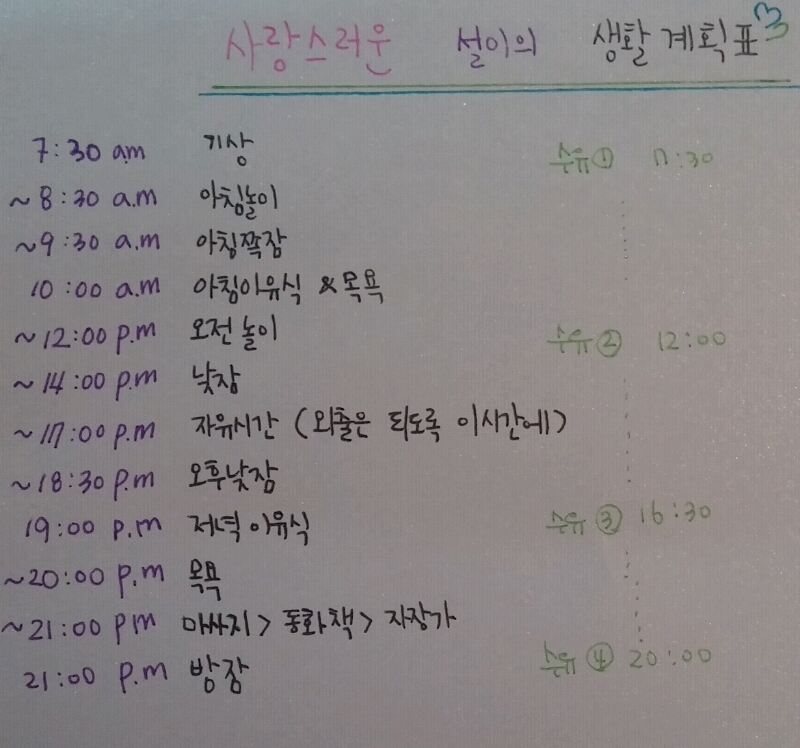 사랑스러운 설이의 생활계획표
7:30 a.m 기상 수유① 7:30
~8:30 a.m 아침놀이
~9:30 a.m 아침쪽잠
10:00 a.m 아침이유식 & 목욕
~12:00 p.m 오전놀이 수유② 12:00
~14:00 p.m 낮잠
~17:00 p.m 자유시간 (외출은 되도록 이시간에)
~18:30 p.m 오후낮잠
19:00 p.m 저녁이유식 수유③ 16:30
~20:00 p.m 목욕
~21:00 pm 마싸지> 동화책> 자장가
21:00 p.m 밤잠 수유④ 20:00